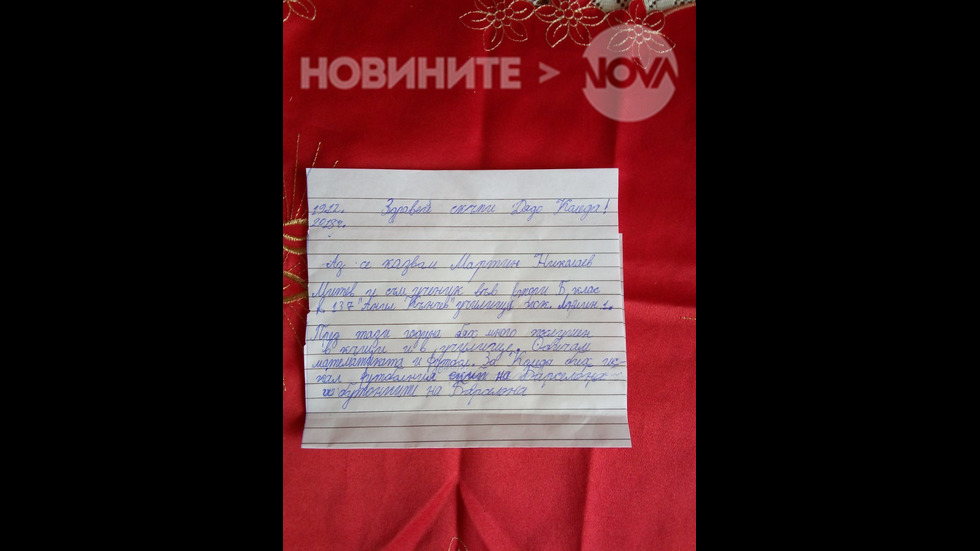 НОВИНИТЕ > NOVA
19.12. Здравей скъпи Дядо Коледа!
2018г.
Аз се казвам Мартин Николаев
Митев и съм ученик във втори Б клас
в 137 "Ангел Кънчев" училище жк. Люлин 1.
През тази година бях много послушен
в къщи и в училище. Обичам
математиката и футбол. За Коледа бих ис-
кал футболния екип на Барселона
и бутонките на Барселона